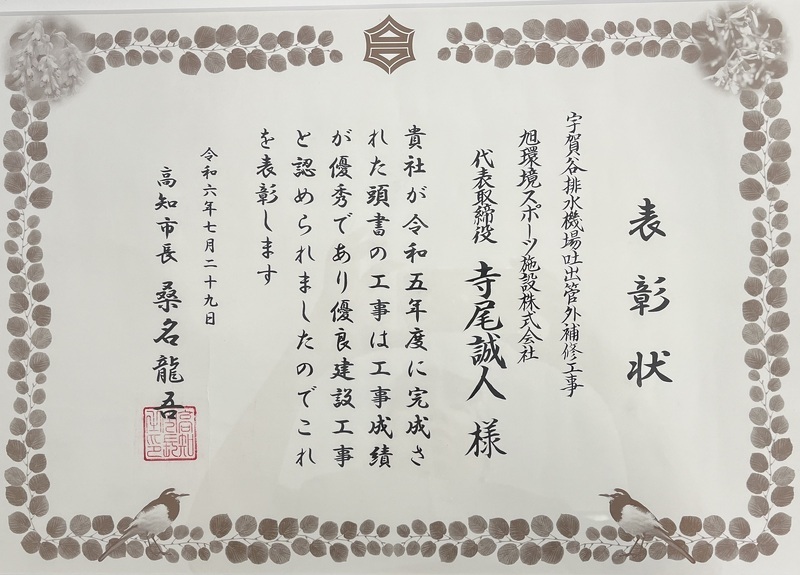 表彰状
宇賀谷排水機場吐出管外補修工事
旭環境スポーツ施設株式会社
代表取締役 寺尾誠人 様
貴社が令和五年度に完成さ
れた頭書の工事は工事成績
が優秀であり優良建設工事
と認められましたのでこれ
を表彰します
令和六年七月二十九日
高知市長 桑名龍吾
高知市長之印